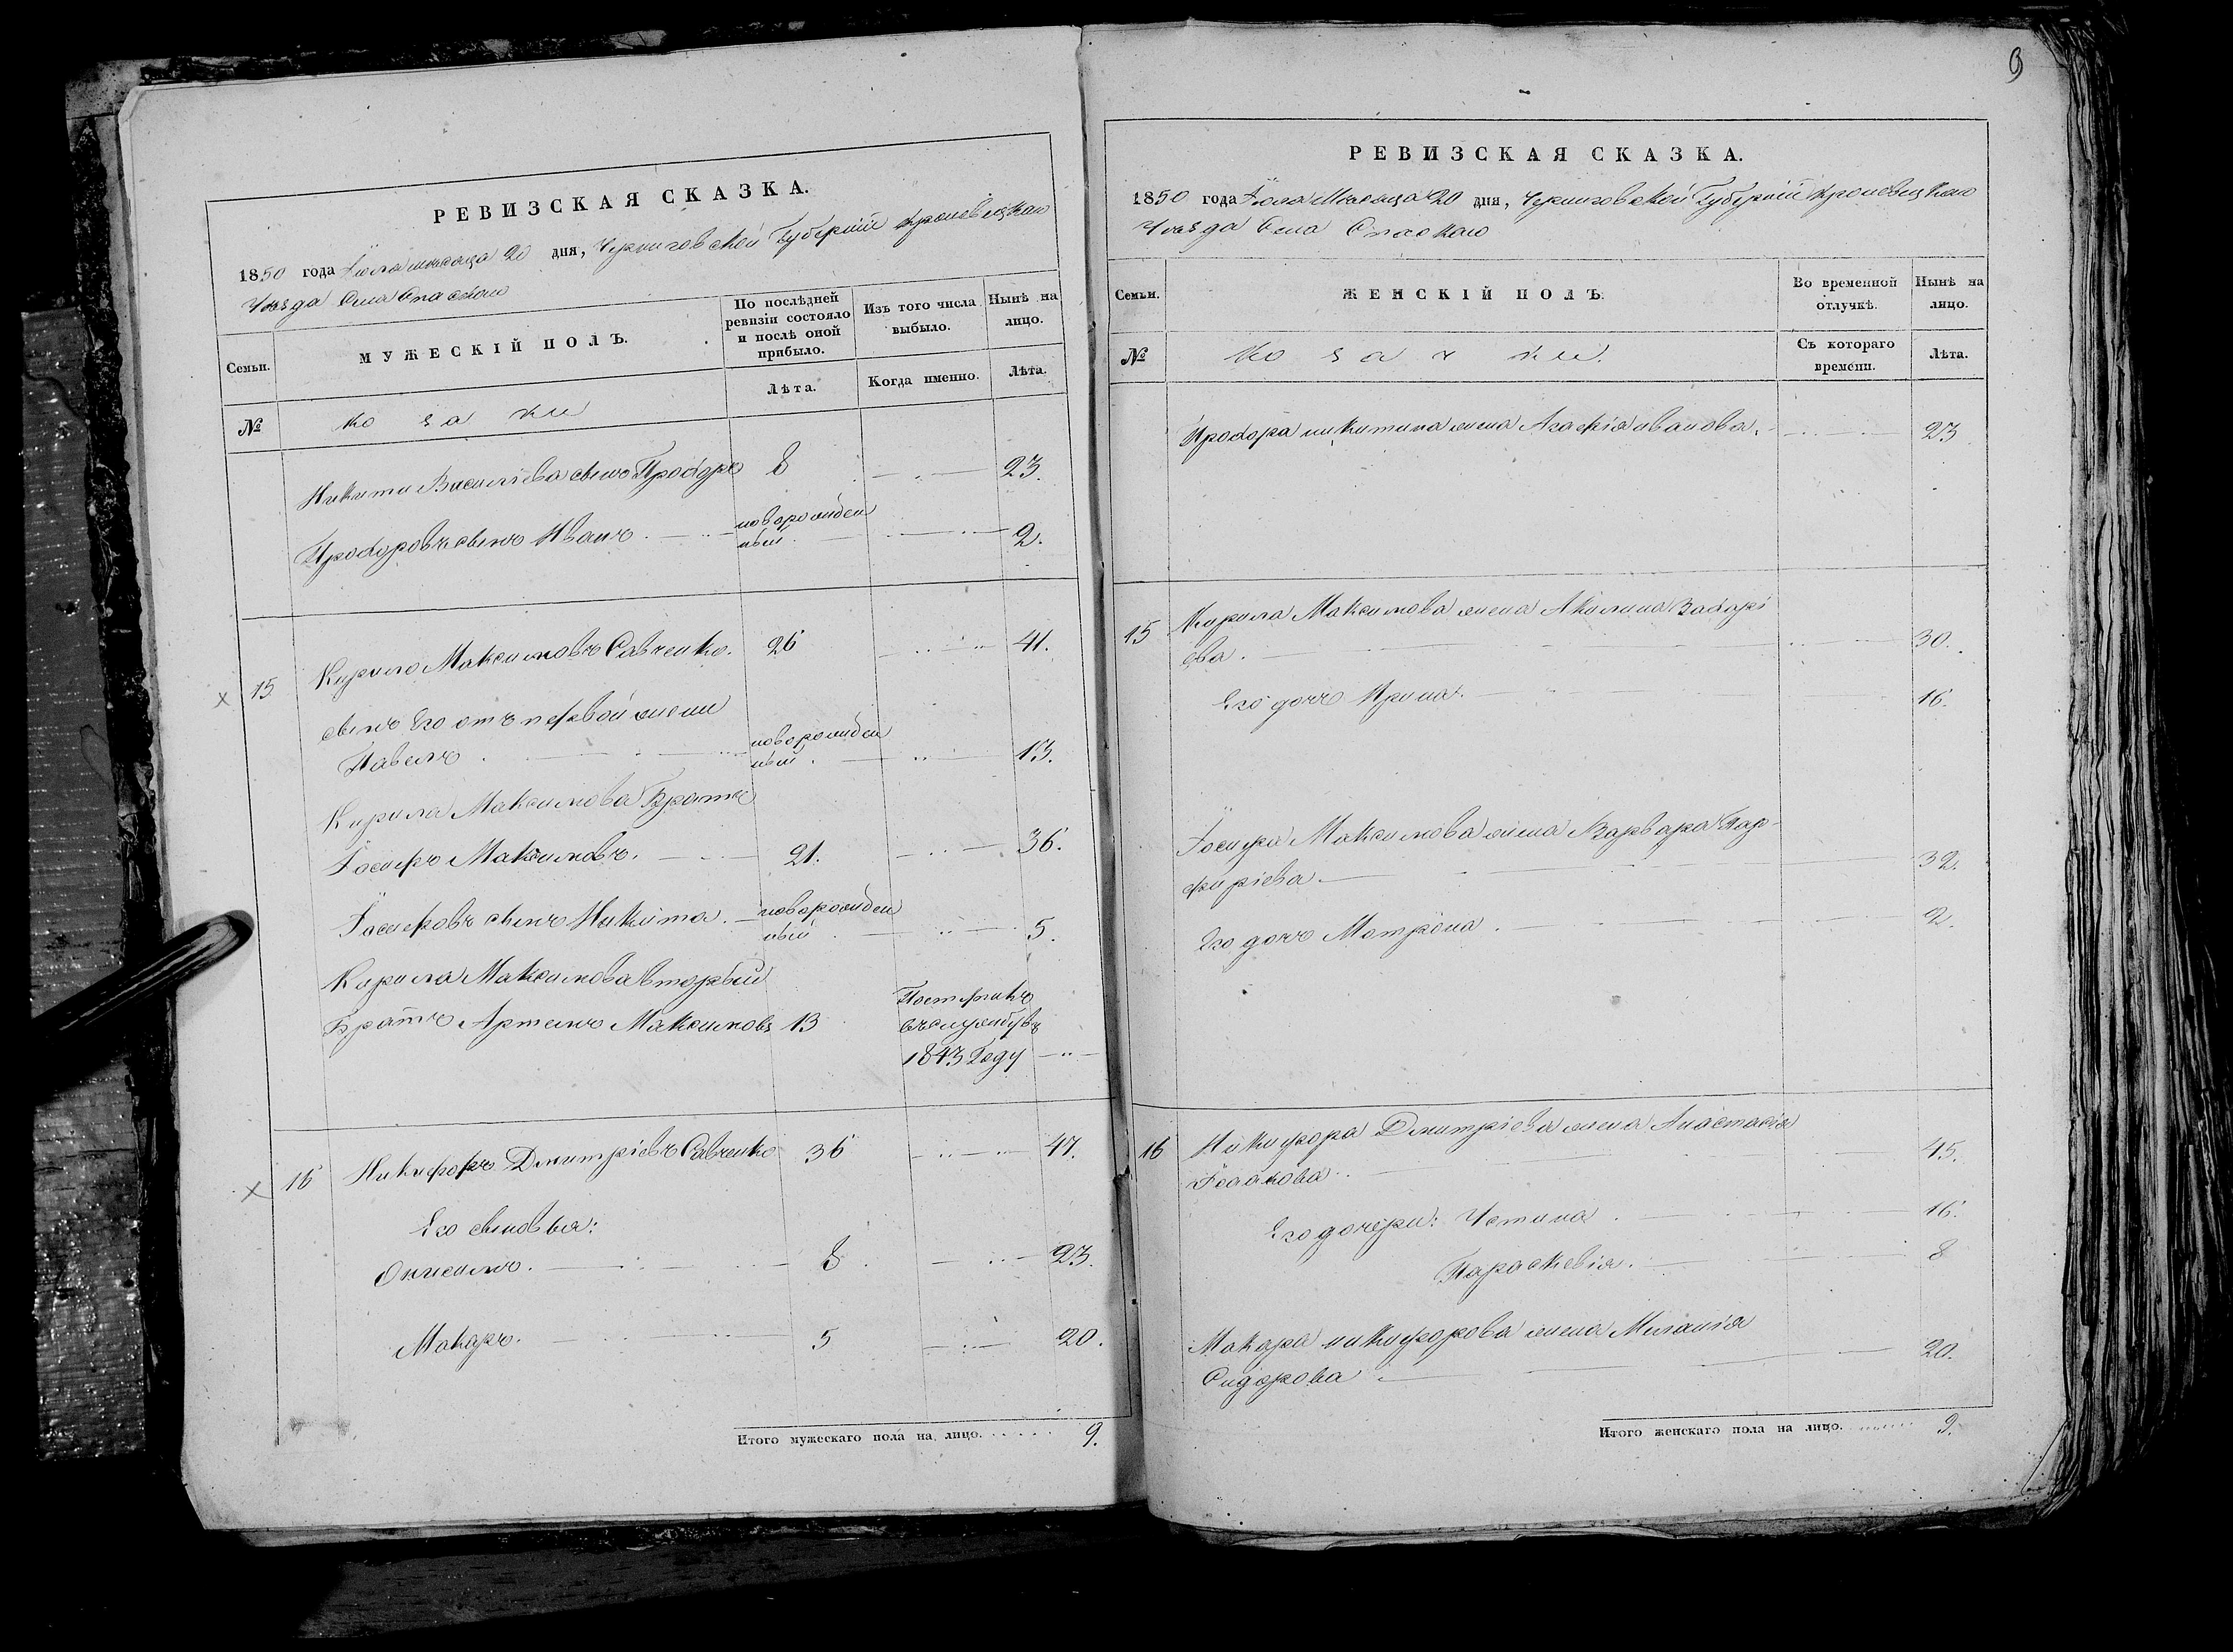 РЕВИЗСКАЯ СКАЗКА.
1850 года Іюля месяца 20 дня, Черниговской Губерніи Кролевецкаго
Уѣзда Села Спаскаго
Семьи. МУЖЕСКІЙ ПОЛЪ. По послѣдней ревизіи состояло и послѣ оной прибыло. Изъ того числа выбыло. Нынѣ на лицо.
№ козаки Лѣта. Когда именно. Лѣта.
Никити Василіева сынъ Прохоръ 8 23.
Прохоровъ сынъ Иванъ новорожден
ный 2.
15 Кирило Максимовъ Савченко. 26 41.
сынъ Его отъ первой жени
Павелъ новорожден
ный 13.
Кирила Максимова Братъ
Іосифъ Максимовъ. 21. 36.
Іосифовъ сынъ Никита. новорожден
ный 5.
Кирила Максимова вторый
Братъ Артемъ Максимовъ 13
1843 Году
16 Никифоръ Дмитріевъ Савченко 36 47.
Его сыновья:
8 23.
Макаръ. 5 20.
Итого мужескаго пола на лицо. 9.
9
РЕВИЗСКАЯ СКАЗКА.
1850 года Іюля Месяца 20 дня, Черниговской Губерніи Кролевецкаго
Уѣзда Села Спаскаго
Семьи. ЖЕНСКІЙ ПОЛЪ. Во временной отлучкѣ. Нынѣ на лицо.
№ козачки. Съ котораго времени. Лѣта.
Прохора никитина жена Агафія иванова. 23
15 Кирила Максимова жена Акилина Захарі
ева. 30.
Его дочь Ирина. 16.
Іосифа Максимова жена Варвара Пар-
фиріева. 32.
Его дочь Матрона. 2.
16 Никифора Дмитріева жена Анастасія
Ісаакова. 45.
Его дочери: Устина. 16.
Параскевія. 8
Макара никифорова жена Миланія
Сидорова 20.
Итого женскаго пола на лицо. 9.